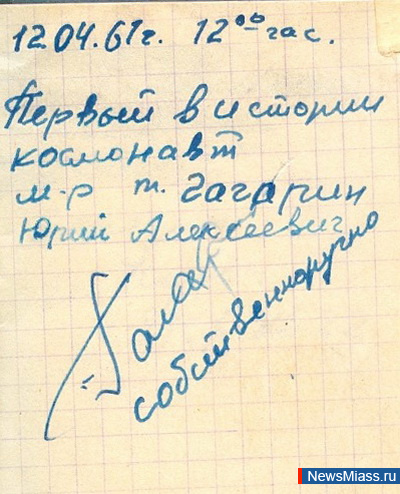 12.04.61г. 12 00 час.
Первый в истории
космонавт
м-р т. Гагарин
Юрий Алексеевич
собственноручно
NewsMiass.ru